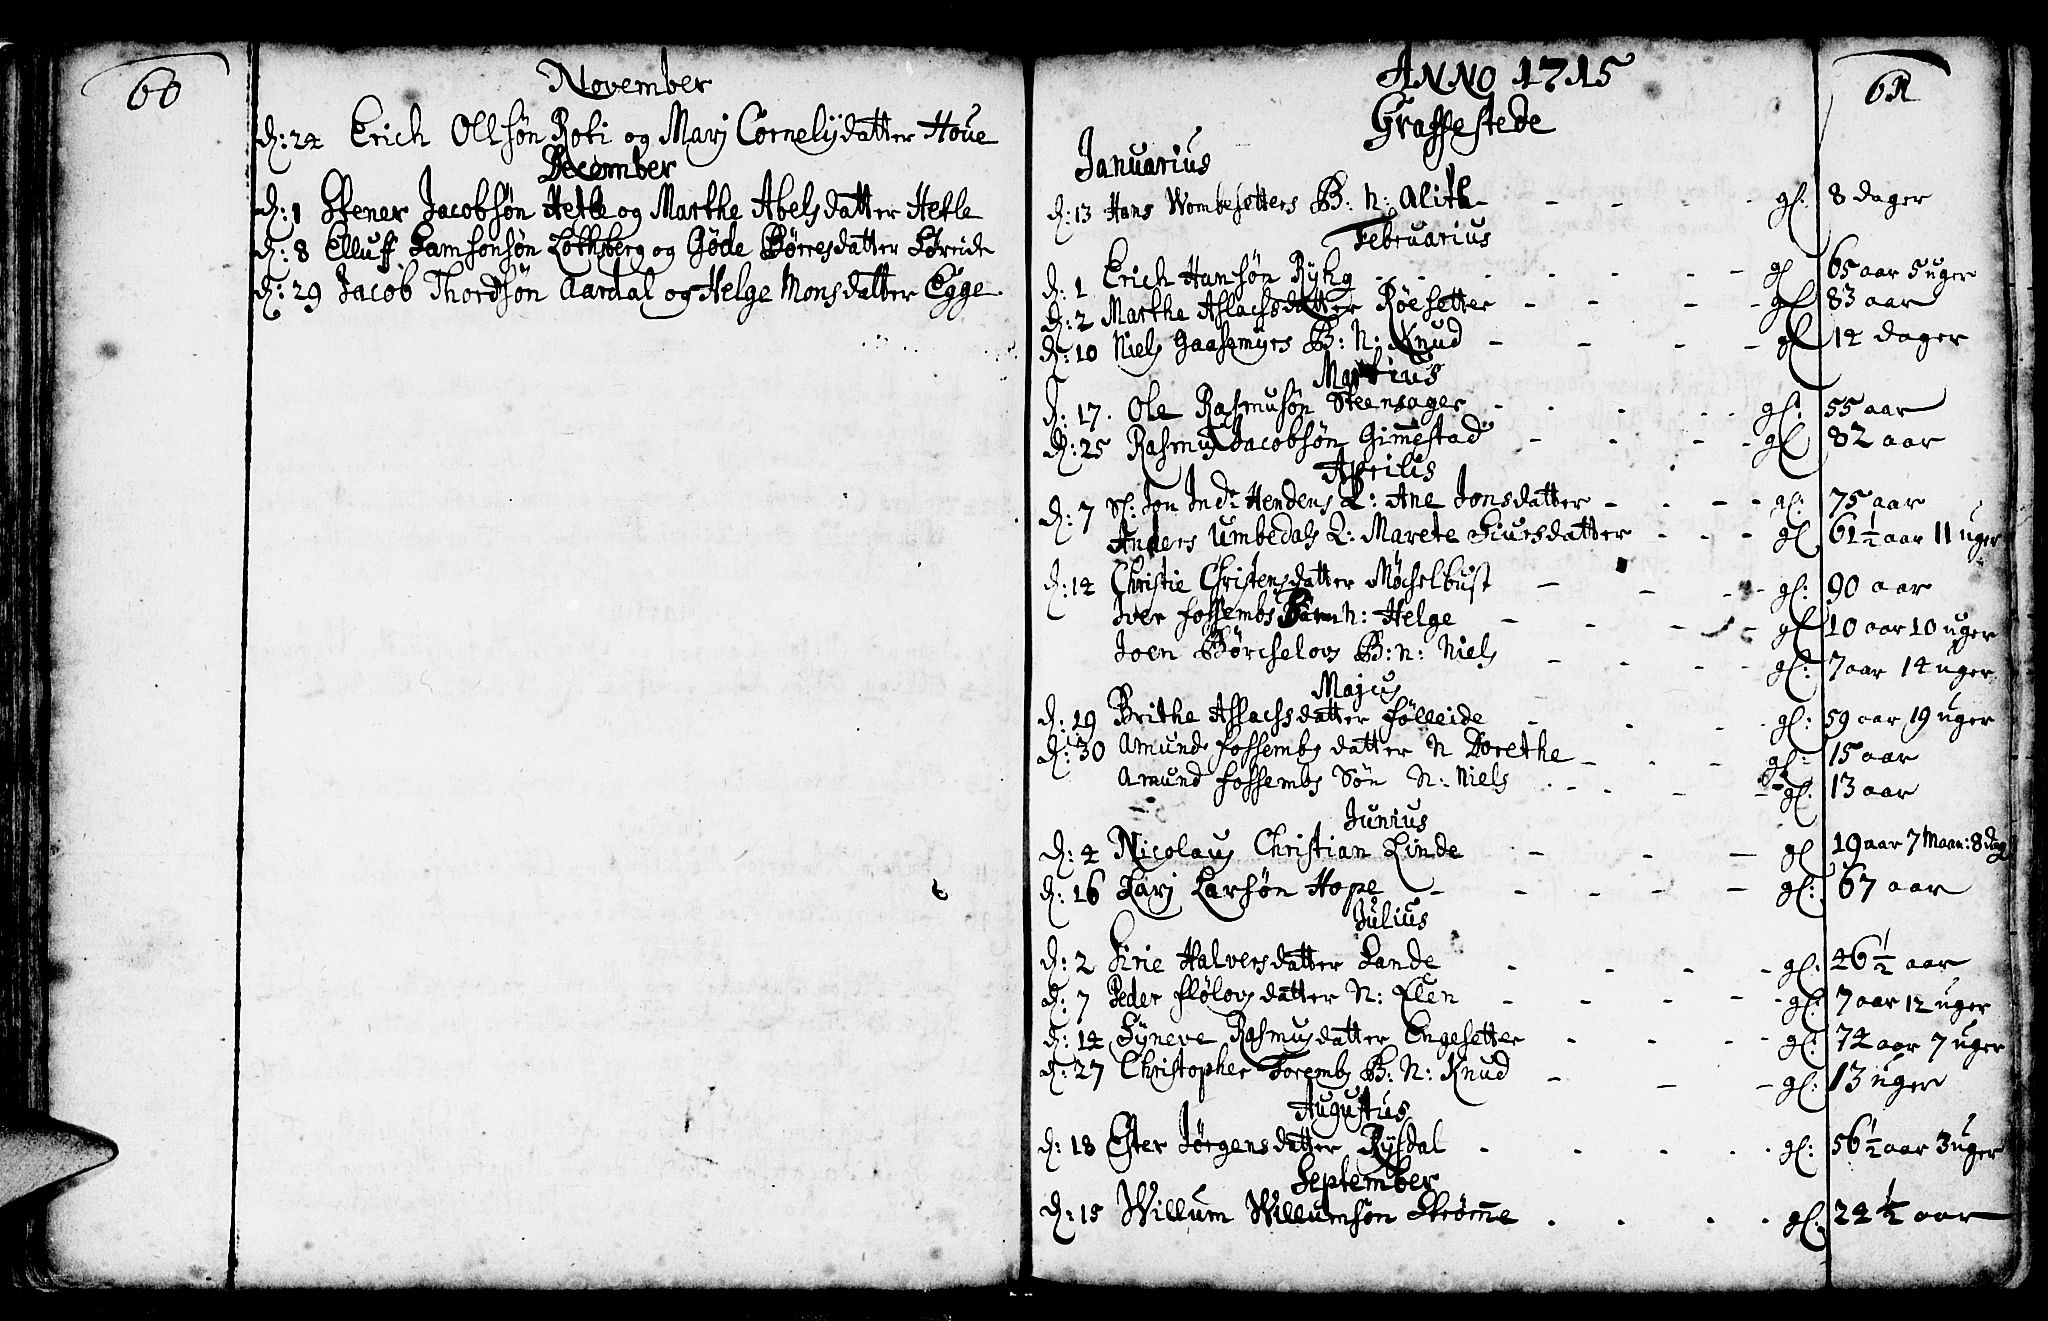 60
November
d: 24 Erich Ollsøn Roti og Marj Cornelijdatter Houe
December
d: 1 Stener Jacobsøn Hetle og Marthe Abelsdatter Hetle
d: 8 Elluff Samsonsøn Lothsberg og Gøde Børresdatter Støreide
d: 29 Jacob Thordsøn Aardal og Helge Monsdatter Egge
61
ANNO 1715
Graffestede
Januarius
d: 13 Hans Wombesetters B: N: Alith gl: 8 dager
Februarius
d: 1 Erich Hansøn Rykg gl 65 aar 5 uger
d: 2 Marthe Aslachsdatter Røesetter gl 83 aar
d: 10 Niels Gaasemyrs B: N: Knud gl 14 dager
Martius
d: 17. Ole Rasmusøn Steensager gl: 55 aar
d: 25 Rasmus Jacobsøn Gimestad gl 82 aar
Aprilis
d: 7 Sl: Jon Indr Hendens Q: Ane Jonsdatter gl: 75 aar
Anders Umbedals Q: Marete Siursdatter gl 61½ aar 11 uger
d: 14 Christie Christensdatter Møchelbust gl: 90 aar
Iver Fossembs Barn n: Helge gl 10 aar 10 uger
Joen Børchelovs B: n: Niels gl: 7 aar 14 uger
Majus
d: 19 Brithe Aslachsdatter Følleide gl: 59 aar 19 uger
d: 30 Amunds Fossembs datter N Dorethe gl: 15 aar
Amund Fossembs Søn N: Niels gl. 13 aar
Junius
d: 4 Nicolaus Christian Linde gl 19 aar 7 Maan: 8 dag
d: 16 Larj Larsøn Hope gl: 67 aar
Julius
d: 2 Sirie Halversdatter Sande gl: 46½ aar
d: 7 Peder Fløtovs datter N: Elen gl: 7 aar 12 uger
d: 14 Syneve Rasmusdatter Engesetter gl: 74 aar 7 uger
d: 27 Christopher Forembs B: N: Knud gl: 13 uger
Augustus
d: 18 Ester Jørgensdatter Rysdal gl: 56½ aar 3 uger
September
d: 15 Willum Willumsøn Strøme gl: 24½ aar